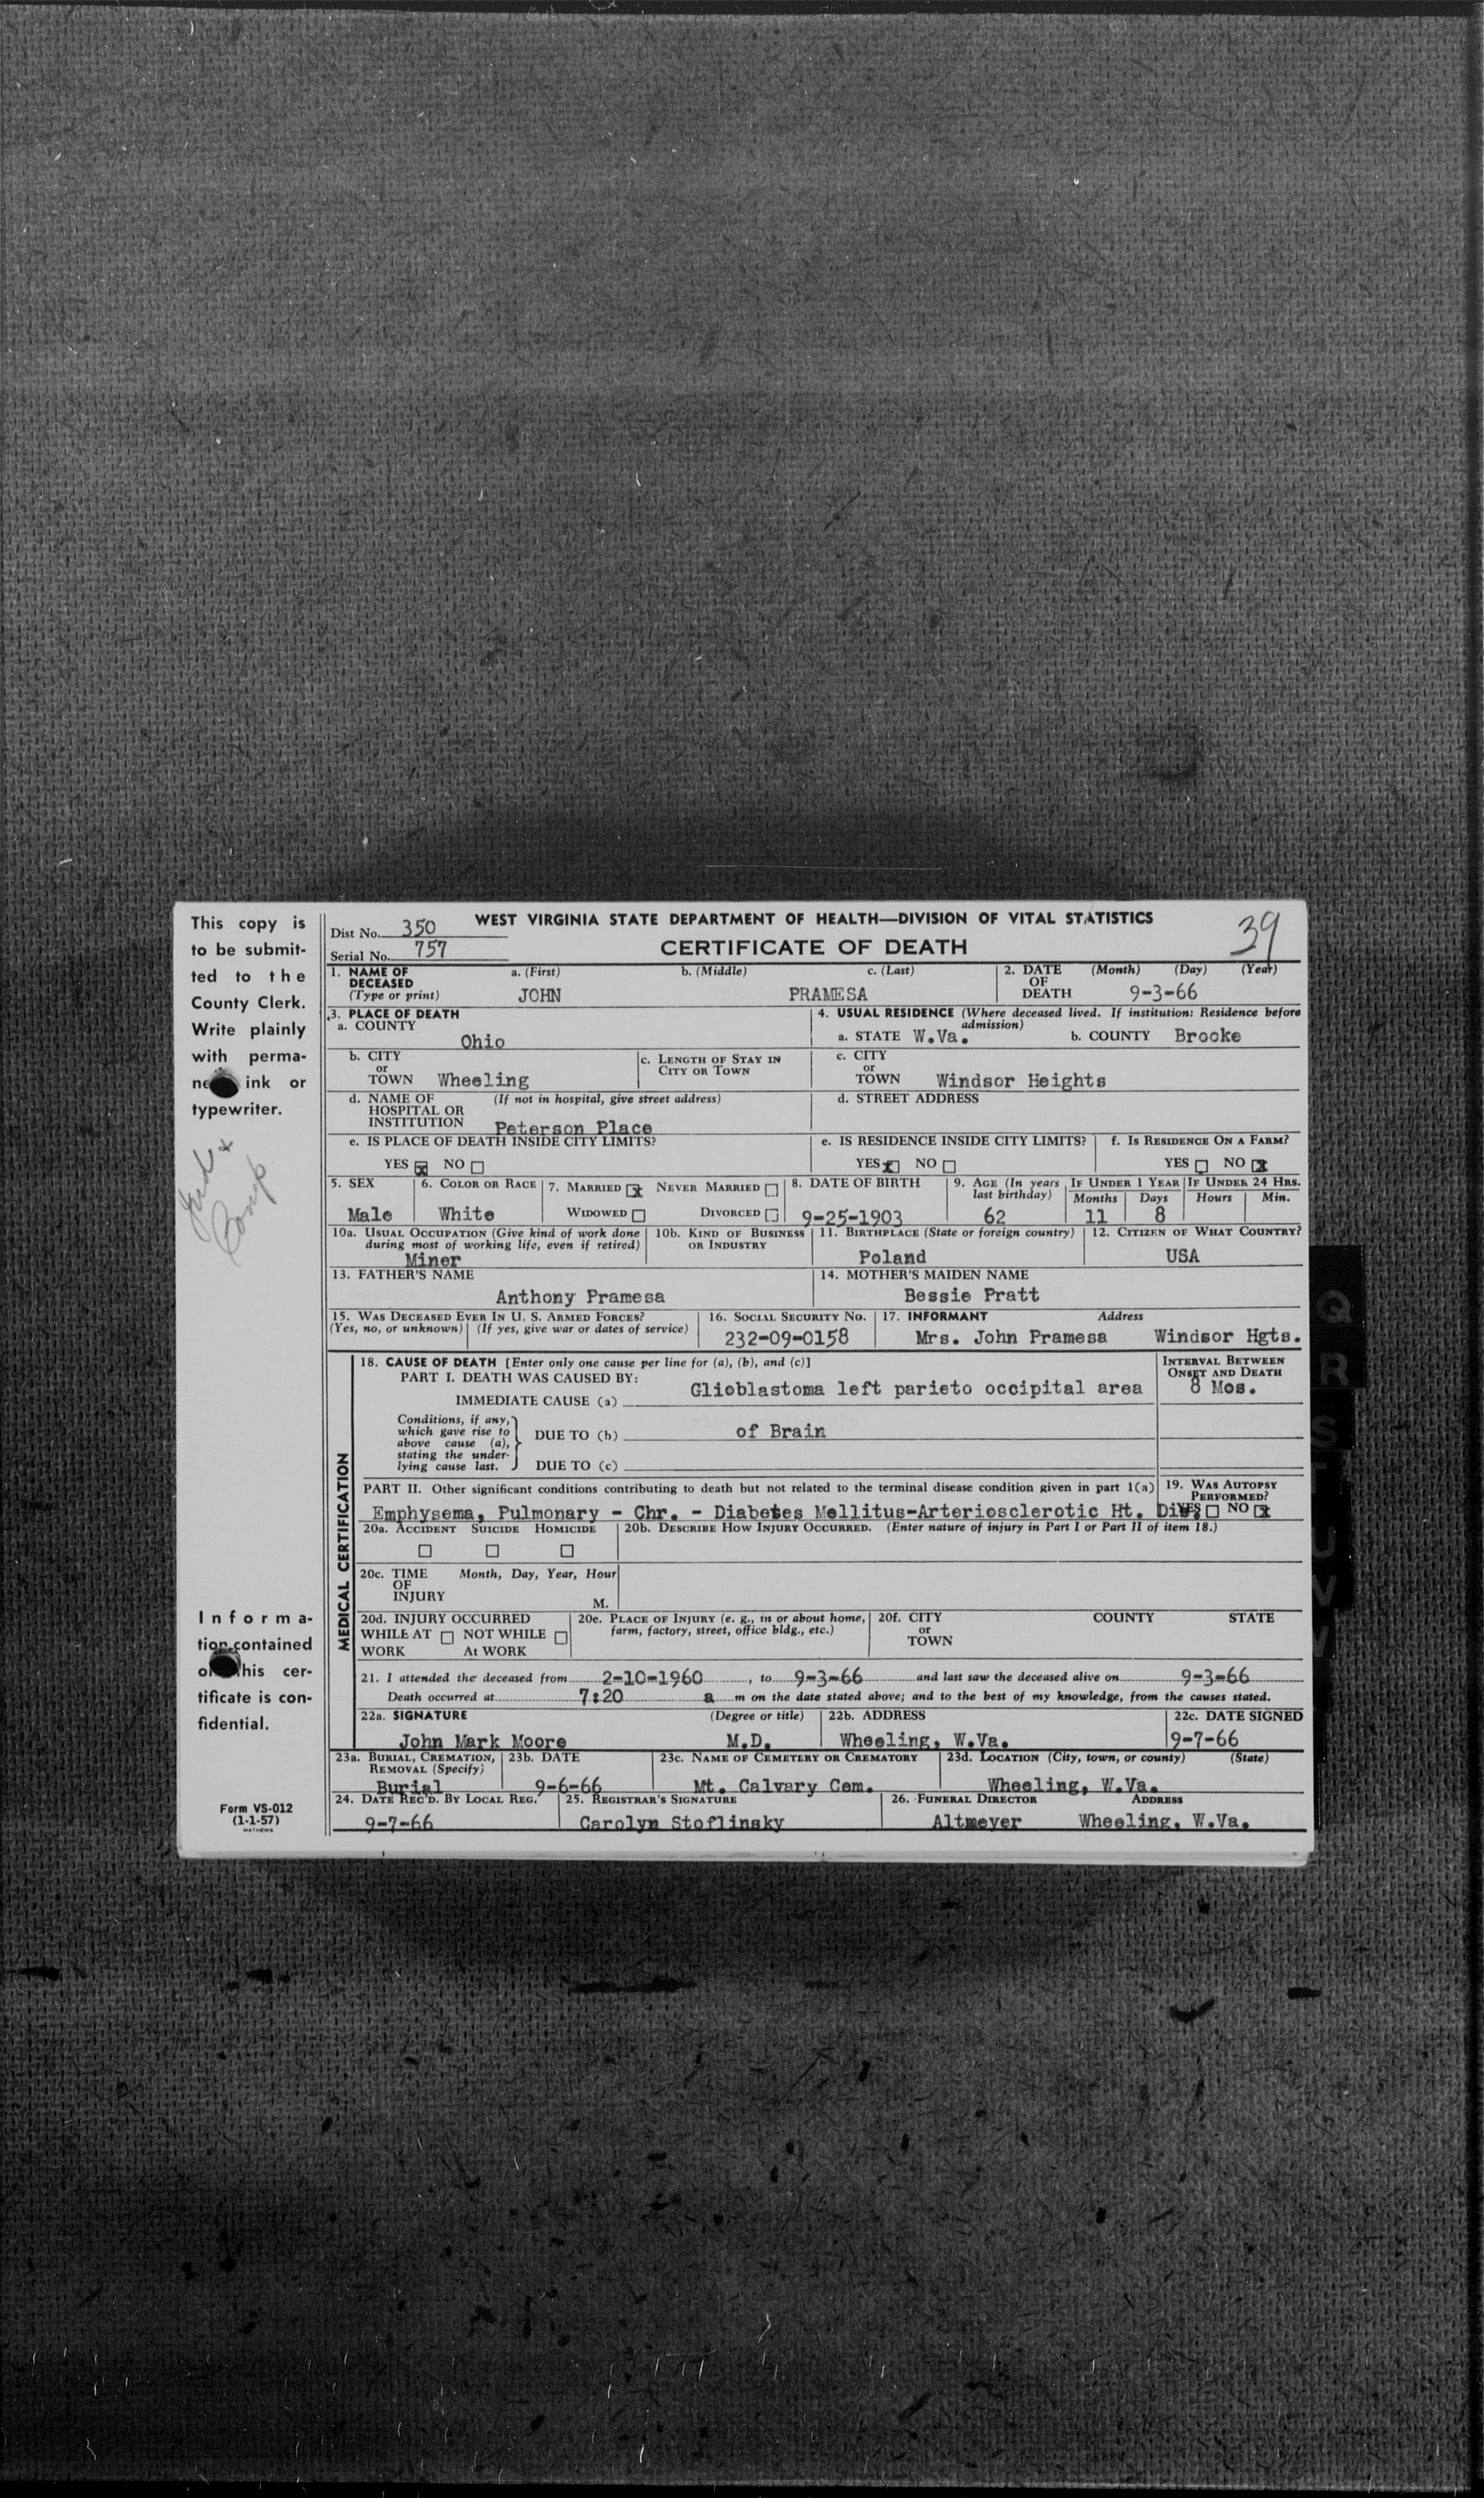 This copy is
to be submit-
ted to the
County Clerk.
Write plainly
with perma-
ink or
typewriter.
Index
Comp
Informa-
tion contained
on this cer-
tificate is con-
fidential.
Form VS-012
(1-1-57)
MATHEWS
WEST VIRGINIA STATE DEPARTMENT OF HEALTH—DIVISION OF VITAL STATISTICS
Dist No. 350
Serial No. 757
CERTIFICATE OF DEATH
39
1. NAME OF DECEASED (Type or print) a. (First) b. (Middle) c. (Last)
JOHN PRAMESA
2. DATE OF DEATH (Month) (Day) (Year)
9-3-66
3. PLACE OF DEATH
a. COUNTY
Ohio
4. USUAL RESIDENCE (Where deceased lived. If institution: Residence before admission)
a. STATE W.Va. b. COUNTY Brooke
b. CITY or TOWN Wheeling
c. LENGTH OF STAY IN CITY OR TOWN
c. CITY or TOWN Windsor Heights
d. NAME OF HOSPITAL OR INSTITUTION (If not in hospital, give street address)
Peterson Place
d. STREET ADDRESS
e. IS PLACE OF DEATH INSIDE CITY LIMITS?
YES ☒ NO ☐
e. IS RESIDENCE INSIDE CITY LIMITS?
YES ☒ NO ☐
f. IS RESIDENCE ON A FARM?
YES ☐ NO ☒
5. SEX
Male
6. COLOR OR RACE
White
7. MARRIED ☒ NEVER MARRIED ☐
WIDOWED ☐ DIVORCED ☐
8. DATE OF BIRTH
9-25-1903
9. AGE (In years last birthday)
62
IF UNDER 1 YEAR
Months Days
11 8
IF UNDER 24 HRS.
Hours Min.
10a. USUAL OCCUPATION (Give kind of work done during most of working life, even if retired)
Miner
10b. KIND OF BUSINESS OR INDUSTRY
11. BIRTHPLACE (State or foreign country)
Poland
12. CITIZEN OF WHAT COUNTRY?
USA
13. FATHER'S NAME
Anthony Pramesa
14. MOTHER'S MAIDEN NAME
Bessie Pratt
15. WAS DECEASED EVER IN U. S. ARMED FORCES?
(Yes, no, or unknown) (If yes, give war or dates of service)
16. SOCIAL SECURITY NO.
232-09-0158
17. INFORMANT Address
Mrs. John Pramesa Windsor Hgts.
MEDICAL CERTIFICATION
18. CAUSE OF DEATH [Enter only one cause per line for (a), (b), and (c)]
PART I. DEATH WAS CAUSED BY:
IMMEDIATE CAUSE (a) Glioblastoma left parieto occipital area
INTERVAL BETWEEN ONSET AND DEATH
8 Mos.
Conditions, if any, which gave rise to above cause (a), stating the underlying cause last.
DUE TO (b) of Brain
DUE TO (c)
PART II. Other significant conditions contributing to death but not related to the terminal disease condition given in part 1(a)
Emphysema, Pulmonary - Chr. - Diabetes Mellitus-Arteriosclerotic Ht. Dis.
19. WAS AUTOPSY PERFORMED?
YES ☐ NO ☒
20a. ACCIDENT SUICIDE HOMICIDE
☐ ☐ ☐
20b. DESCRIBE HOW INJURY OCCURRED. (Enter nature of injury in Part I or Part II of item 18.)
20c. TIME OF INJURY Month, Day, Year, Hour
M.
20d. INJURY OCCURRED
WHILE AT WORK ☐ NOT WHILE At WORK ☐
20e. PLACE OF INJURY (e. g., in or about home, farm, factory, street, office bldg., etc.)
20f. CITY or TOWN COUNTY STATE
21. I attended the deceased from 2-10-1960, to 9-3-66 and last saw the deceased alive on 9-3-66
Death occurred at 7:20 a m on the date stated above; and to the best of my knowledge, from the causes stated.
22a. SIGNATURE (Degree or title)
John Mark Moore M.D.
22b. ADDRESS
Wheeling, W.Va.
22c. DATE SIGNED
9-7-66
23a. BURIAL, CREMATION, REMOVAL (Specify)
Burial
23b. DATE
9-6-66
23c. NAME OF CEMETERY OR CREMATORY
Mt. Calvary Cem.
23d. LOCATION (City, town, or county) (State)
Wheeling, W.Va.
24. DATE REC'D. BY LOCAL REG.
9-7-66
25. REGISTRAR'S SIGNATURE
Carolyn Stoflinsky
26. FUNERAL DIRECTOR ADDRESS
Altmeyer Wheeling, W.Va.
Q
R
S
T
U
V